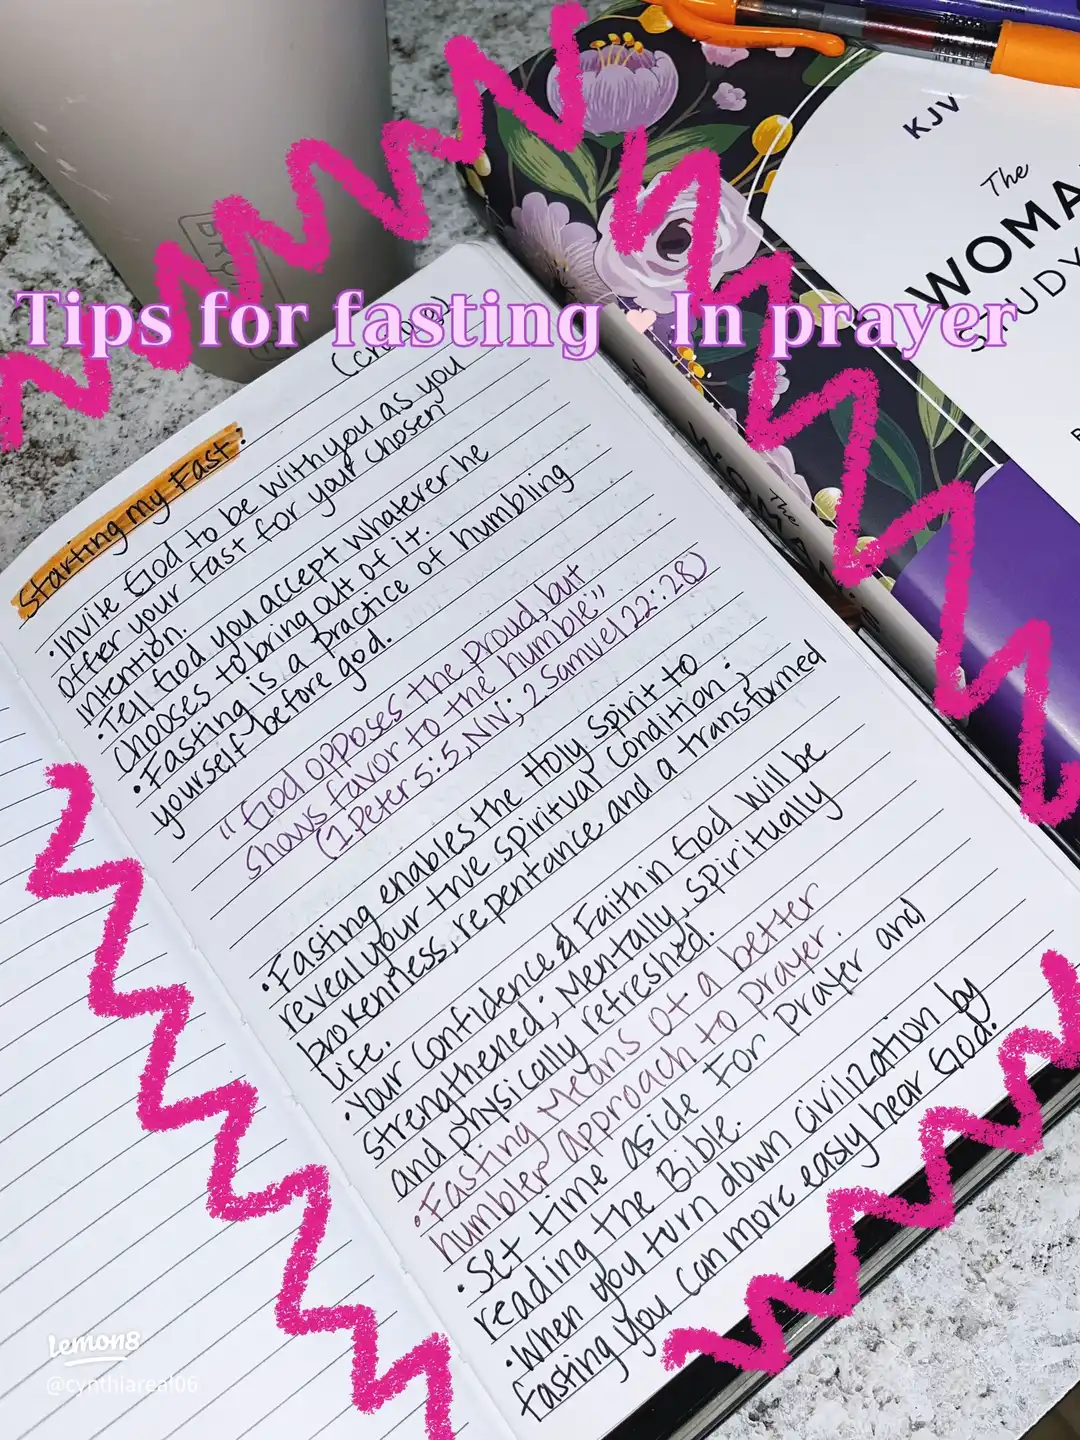 Tips for fasting In prayer
KJV
The
WOMA
STUDY
The
WOMAN'S
Starting my Fast:
• Invite God to be with you as you
offer your fast for your chosen
intention.
• Tell God you accept whatever he
chooses to bring out of it.
• Fasting is a practice of humbling
yourself before god.
"God opposes the Proud, but
shows favor to the humble"
(1 Peter 5:5, NIV; 2 Samuel 22:28)
• Fasting enables the Holy Spirit to
reveal your true spiritual condition;
brokenness, repentance, and a transformed
life.
• Your confidence & Faith in God will be
strengthened; Mentally, spiritually
and physically refreshed.
• Fasting Means of a better
humbler approach to prayer.
• Set time aside For prayer and
reading the Bible.
• When you turn down civilization by
fasting you can more easily hear God.
lemon8
@cynthiareal06